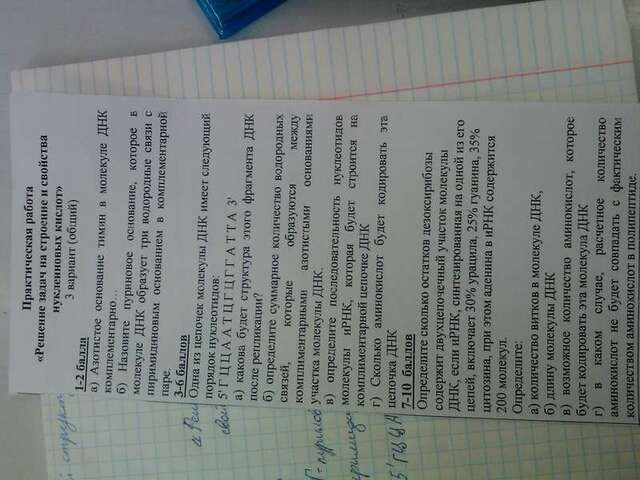 Практическая работа
«Решение задач на строение и свойства
нуклеиновых кислот»
3 вариант (общий)
1-2 балли
а) Азотистое основание тимин в молекуле ДНК
комплементарно…
б) Назовите пуриновое основание, которое в
молекуле ДНК образует три водородные связи с
пиримидиновым основанием в комплементарной
паре.
3-6 баллов
Одна из цепочек молекулы ДНК имеет следующий
порядок нуклеотидов:
5' Г Ц Ц А А Т Ц Г Ц Г Т А Т Т А 3'
а) какова будет структура этого фрагмента ДНК
после репликации?
б) определите суммарное количество водородных
связей, которые образуются между
комплиментарными азотистыми основаниями
участка молекулы ДНК.
в) определите последовательность нуклеотидов
молекулы иРНК, которая будет строится на
комплиментарной цепочке ДНК
г) Сколько аминокислот будет кодировать эта
цепочка ДНК
7-10 баллов
Определите сколько остатков дезоксирибозы
содержит двухцепочечный участок молекулы
ДНК, если иРНК, синтезированная на одной из его
цепей, включает 30% урацила, 25% гуанина, 35%
цитозина, при этом аденина в иРНК содержится
200 молекул.
Определите:
а) количество витков в молекуле ДНК,
б) длину молекулы ДНК
в) возможное количество аминокислот, которое
будет кодировать эта молекула ДНК
г) в каком случае, расчетное количество
аминокислот не будет совпадать с фактическим
количеством аминокислот в полипептиде.
й структ
а Реш
свой
5' ГЦЦА